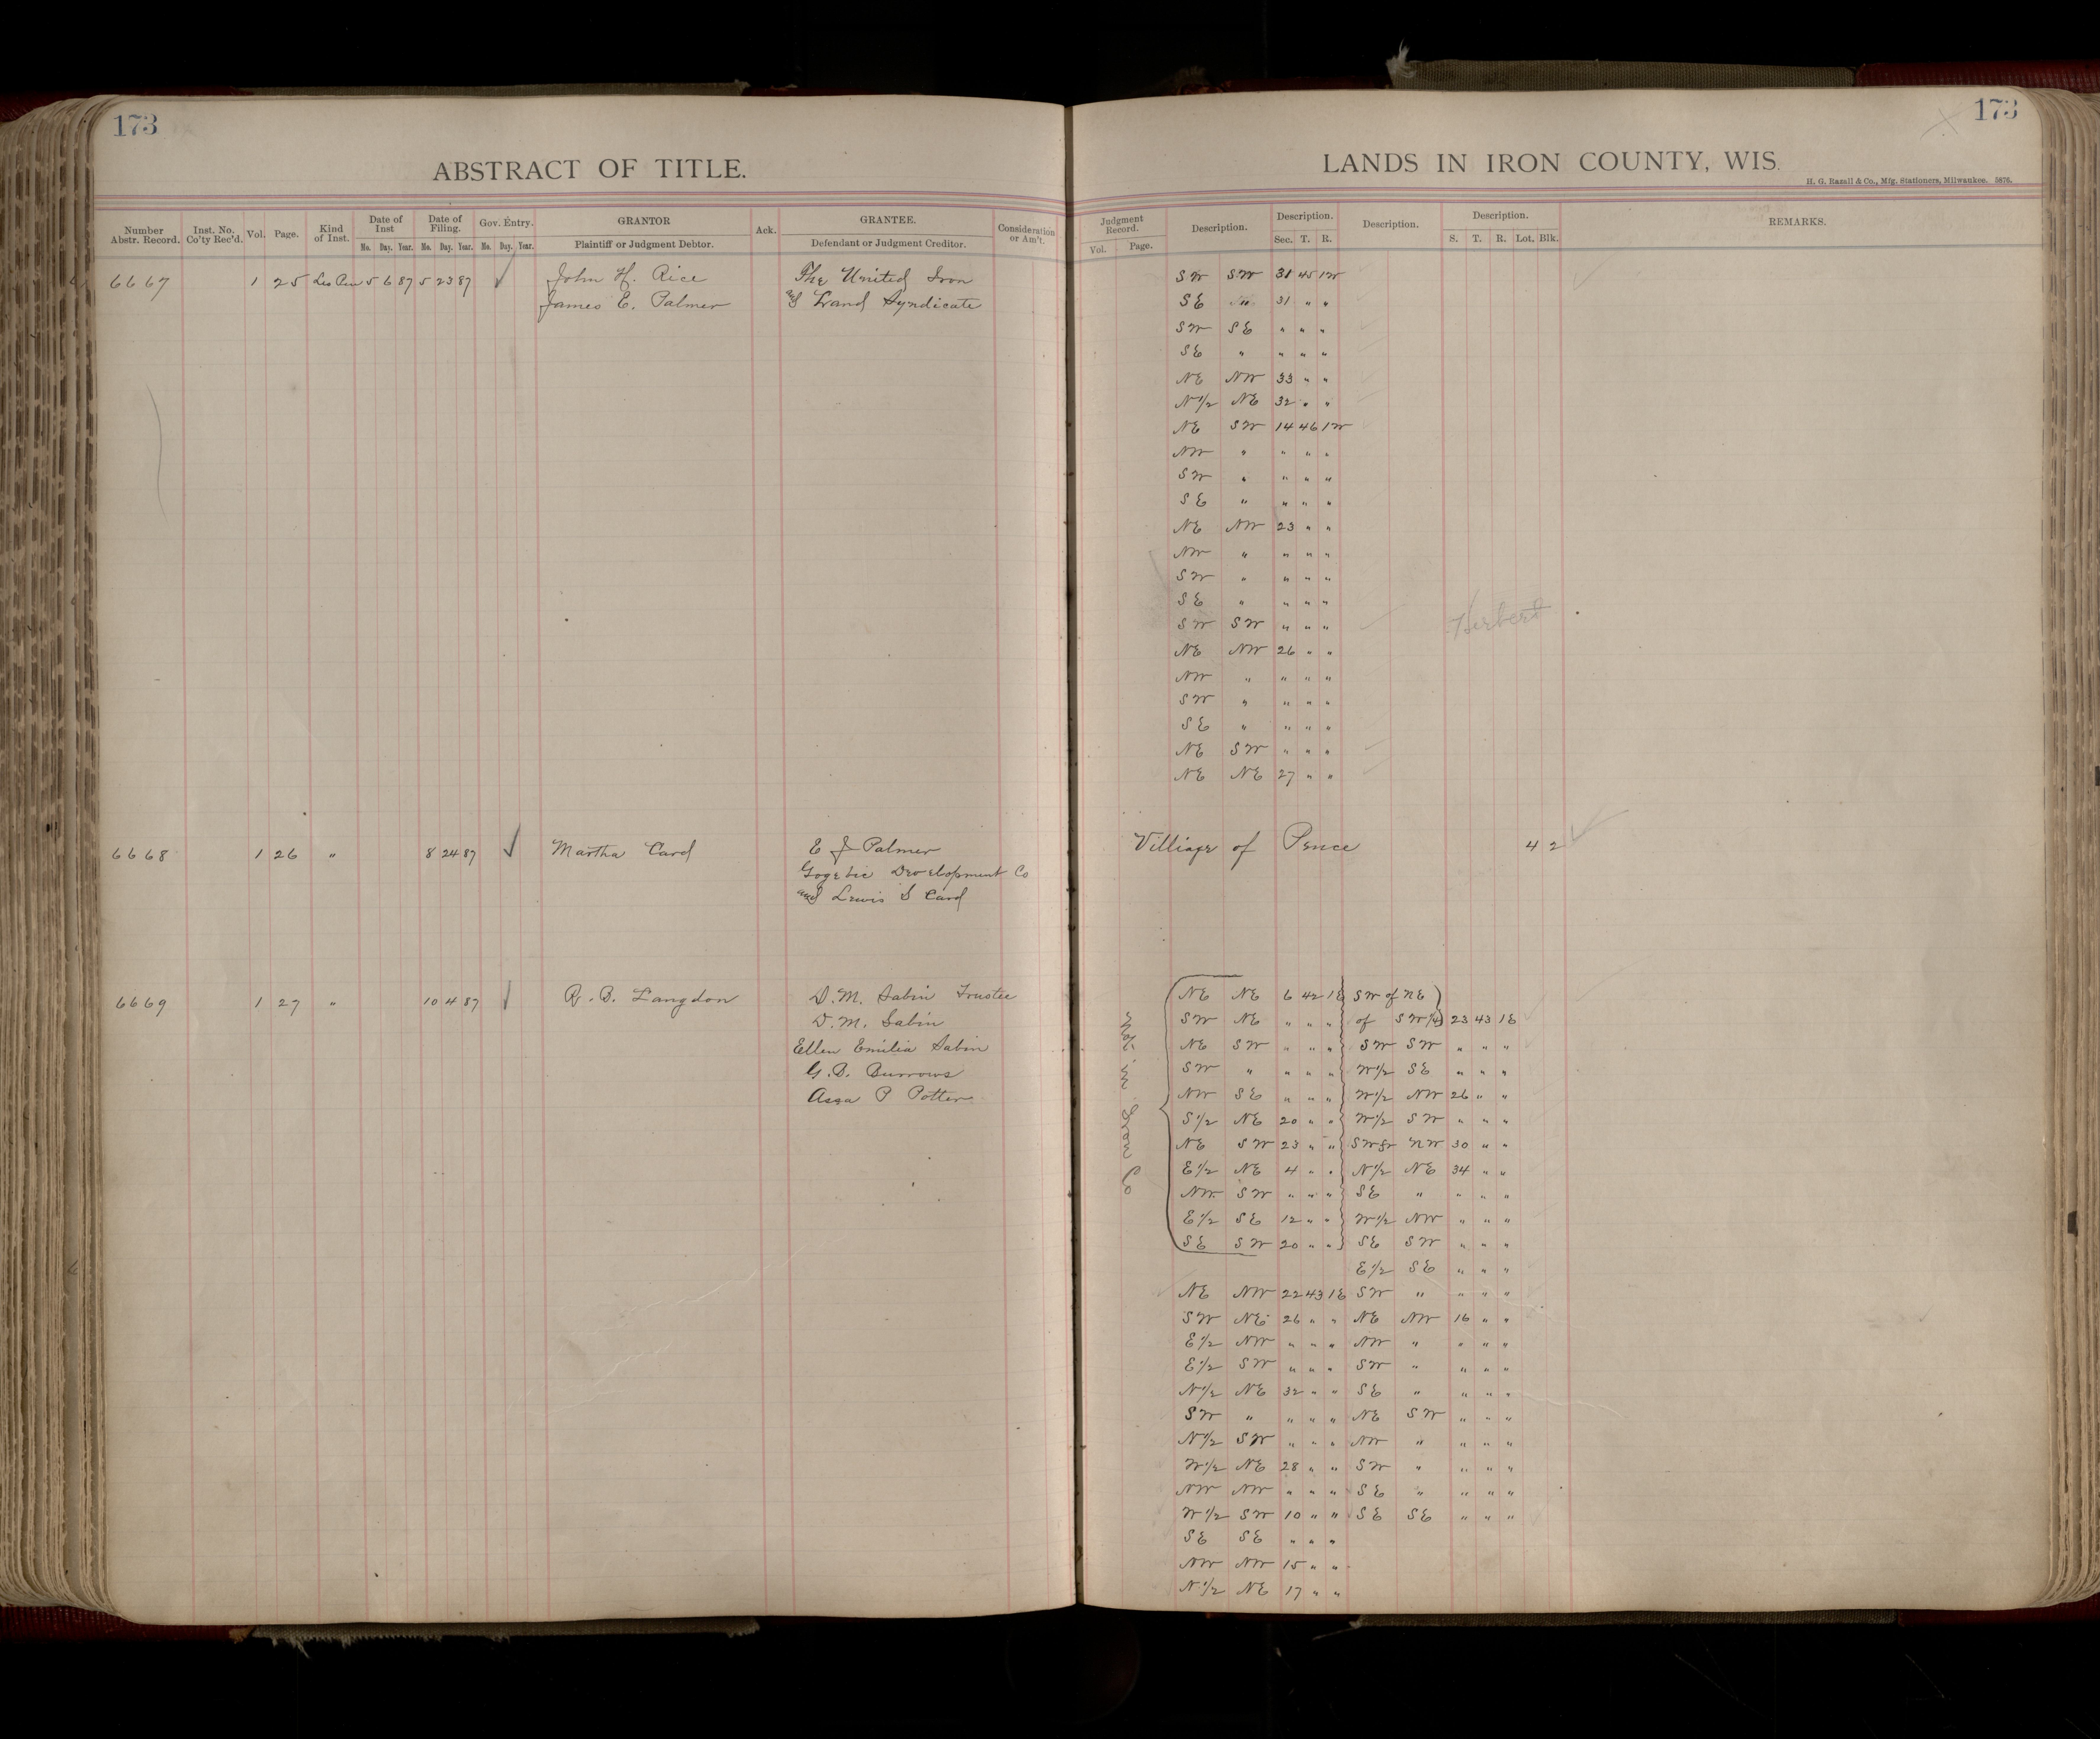 173
173
ABSTRACT OF TITLE.
LANDS IN IRON COUNTY, WIS.
H. G. Razall & Co., Mfg. Stationers, Milwaukee. 5876.
Number Abstr. Record. Inst. No. Co'ty Rec'd. Vol. Page. Kind of Inst. Date of Inst Date of Filing. Gov. Entry. GRANTOR Ack. GRANTEE. Consideration or Am't. Judgment Record. Description. Description. Description. Description. REMARKS.
Mo. Day. Year. Mo. Day. Year. Mo. Day. Year. Plaintiff or Judgment Debtor. Defendant or Judgment Creditor. Vol. Page. Sec. T. R. S. T. R. Lot. Blk.
6667 1 25 Les Pen 5 6 87 5 23 87 ✓ John H. Rice The United Iron SW SW 31 45 1W
James E. Palmer and Land Syndicate SE " 31 " "
SW SE " " "
SE " " " "
NE NW 33 " "
N1/2 NE 32 " "
NE SW 14 46 1W
NW " " " "
SW " " " "
SE " " " "
NE NW 23 " "
NW " " " "
SW " " " "
SE " " " "
Herbert
SW SW " " "
NE NW 26 " "
NW " " " "
SW " " " "
SE " " " "
NE SW " " "
NE NE 27 " "
6668 1 26 " 8 24 87 ✓ Martha Card E J Palmer Villiage of Pence 4 2
Gogebic Development Co
and Lewis S Card
6669 1 27 " 10 4 87 ✓ R. B. Langdon D. M. Sabin Trustee NE NE 6 42 1E SW of NE
D. M. Sabin SW NE " " " of SW1/4 23 43 1E
Ellen Emilia Sabin NE SW " " " SW SW " " "
G. B. Burrows SW " " " " W1/2 SE " " "
Asa P Potter NW SE " " " W1/2 NW 26 " "
Not in Iron Co
S1/2 NE 20 " " W1/2 SW " " "
NE SW 23 " " SWfr NW 30 " "
E1/2 NE 4 " " N1/2 NE 34 " "
NW SW " " " SE " " " "
E1/2 SE 12 " " W1/2 NW " " "
SE SW 20 " " SE SW " " "
E1/2 SE " " "
NE NW 22 43 1E SW " " " "
SW NE 26 " " NE NW 16 " "
E1/2 NW " " " NW " " " "
E1/2 SW " " " SW " " " "
N1/2 NE 32 " " SE " " " "
SW " " " " NE SW " " "
N1/2 SW " " " NW " " " "
W1/2 NE 28 " " SW " " " "
NW NW " " " SE " " " "
W1/2 SW 10 " " SE SE " " "
SE SE " " "
NW NW 15 " "
N1/2 NE 17 " "